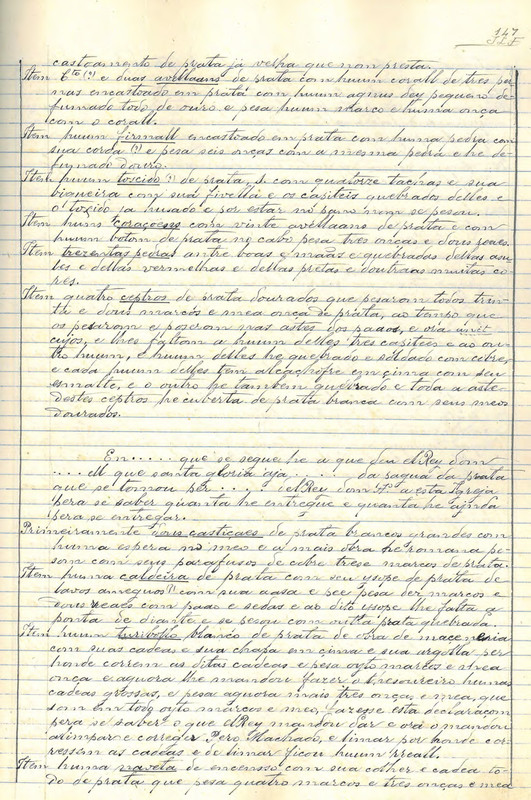 147
castoamento de prata já velha que nom presta.
Item 6to (?) e duas avellaans de prata com huum corall de tres per
nas encastoado em prata com huum agnus dey pequeno de
fumado todo de ouro e pesa huum marco e huma onça
com o corall.
Item huum firmall encastoado em prata com huma pedra com
sua corda (?) e pesa seis onças com a mesma pedra e he de
fumado douro.
Item huum toscido (?) de prata, com quatorze taçinas e sua
bioqueira com sua fivella e os capiteis quebrados delles e
o toxido ja husado e por estar no pano nom se pesou.
Item huns coraçoens com vinte avellaans de prata e com
huum botom de prata no cabo pesa tres onças e dous reaes.
Item trezentas pedras antre boas e maas e quebradas dellas asu
les e dellas vermelhas e dellas pretas e doutras muitas co
res.
Item quatro ceptros de prata dourados que pesaram todos trin
ta e dous marcos e mea onça de prata, ao tempo que
os pesarom e poserom nas astes dos paaos, e oia
cujos, e lhes faltam a huum delles tres capiteis e ao ou
tro huum, e huum delles he quebrado e soldado com cobre,
e cada huum delles tem alcachofre em çima com seu
esmalte, e o outro he tambem quebrado e toda a aste
destes ceptros he cuberta de prata branca com seus meos
dourados.
En ..... que se segue he a que deu elRey dom
.... M que santa gloria aja ..... da paguá da prata
que se tomou per ..... elRey dom Aº a esta Igreja
pera se saber quanta he entregue e quanta he ajnda
pera se entregar.
Primeiramente dous castiçaes de prata brancos grandes com
huma espera no meo e a mais obra he romana pe
sam com seus parafusos de cobre trese marcos de prata.
Item huma caldeira de prata com seu ysope de prata de
bavos amegus(?) com sua aasa e pee pesa dez marcos e
dous reaes com paao e sedas e ao dito ysope lhe falta a
ponta de diante e se pesou com outra prata quebrada.
Item huum turibollo blanco de prata de obra de maçeneria
com suas cadeas e sua chapa em çima e sua argolla per
honde correm as ditas cadeas e pesa oyto marcos e mea
onça e aguora lhe mandou fazer o thesoureiro humas
cadeas grossas, e pesa aguora mais tres onças e mea, que
som em todo oyto marcos e meo, fazesse esta declaraçom
pera se saber o que elRey mandou dar e ora o mandou
alimpar e correger Pero Machado, e limar por honde cor
ressem as cadeas e do limar ficou huum rreall.
Item huma naveta de encensso com sua colher e cadea to
do de prata que pesa quatro marcos e tres onças e mea